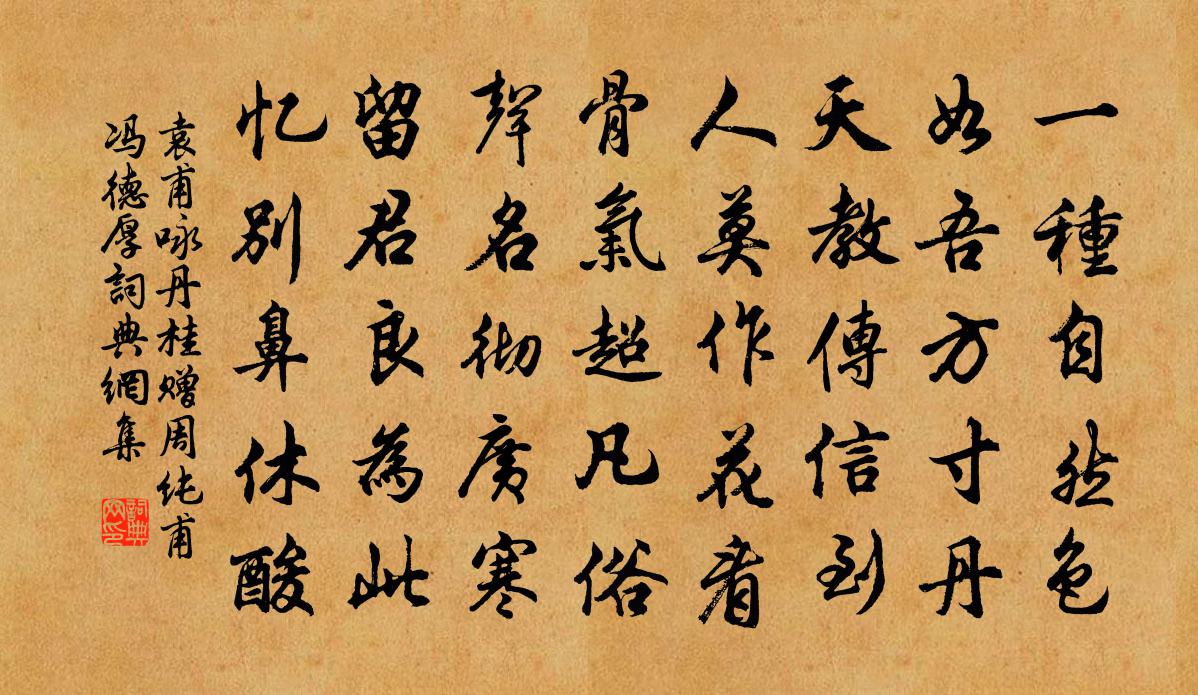 一種自然色
如吾方寸丹
天教傳信到
人莫作花看
骨氣超凡俗
聲名彻廣寒
留君良為此
忆别鼻休酸
袁甫咏丹桂赠周純甫
冯德厚詞典網集
詞典网印